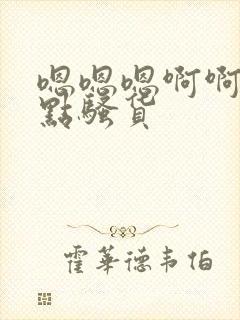 嗯嗯嗯啊啊
點騷貨
霍華德韦伯